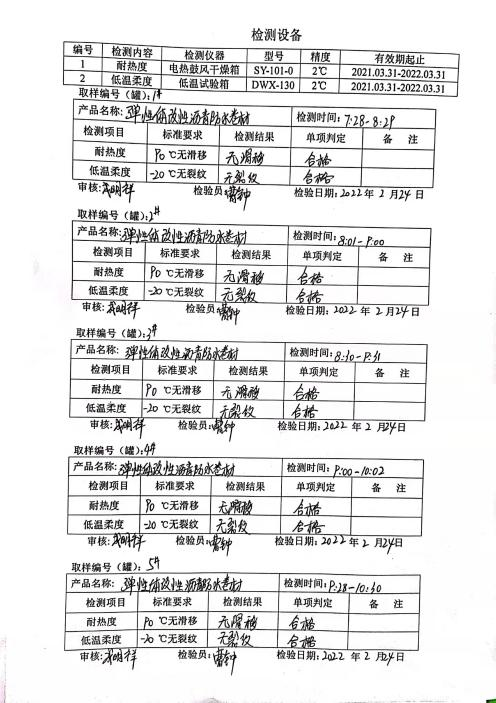 检测设备
编号 检测内容 检测仪器 型号 精度 有效期起止
1 耐热度 电热鼓风干燥箱 SY-101-0 2℃ 2021.03.31-2022.03.31
2 低温柔度 低温试验箱 DWX-130 2℃ 2021.03.31-2022.03.31
取样编号（罐）：1#
产品名称：弹性体改性沥青防水卷材 检测时间：7:28-8:29
检测项目 标准要求 检测结果 单项判定 备 注
耐热度 90℃无滑移 无滑移 合格
低温柔度 -20℃无裂纹 无裂纹 合格
审核： 检验员： 检验日期：2022年2月24日
取样编号（罐）：2#
产品名称：弹性体改性沥青防水卷材 检测时间：8:01-9:00
检测项目 标准要求 检测结果 单项判定 备 注
耐热度 90℃无滑移 无滑移 合格
低温柔度 -20℃无裂纹 无裂纹 合格
审核： 检验员： 检验日期：2022年2月24日
取样编号（罐）：3#
产品名称：弹性体改性沥青防水卷材 检测时间：8:30-9:31
检测项目 标准要求 检测结果 单项判定 备 注
耐热度 90℃无滑移 无滑移 合格
低温柔度 -20℃无裂纹 无裂纹 合格
审核： 检验员： 检验日期：2022年2月24日
取样编号（罐）：4#
产品名称：弹性体改性沥青防水卷材 检测时间：9:00-10:02
检测项目 标准要求 检测结果 单项判定 备 注
耐热度 90℃无滑移 无滑移 合格
低温柔度 -20℃无裂纹 无裂纹 合格
审核： 检验员： 检验日期：2022年2月24日
取样编号（罐）：5#
产品名称：弹性体改性沥青防水卷材 检测时间：9:28-10:30
检测项目 标准要求 检测结果 单项判定 备 注
耐热度 90℃无滑移 无滑移 合格
低温柔度 -20℃无裂纹 无裂纹 合格
审核： 检验员： 检验日期：2022年2月24日